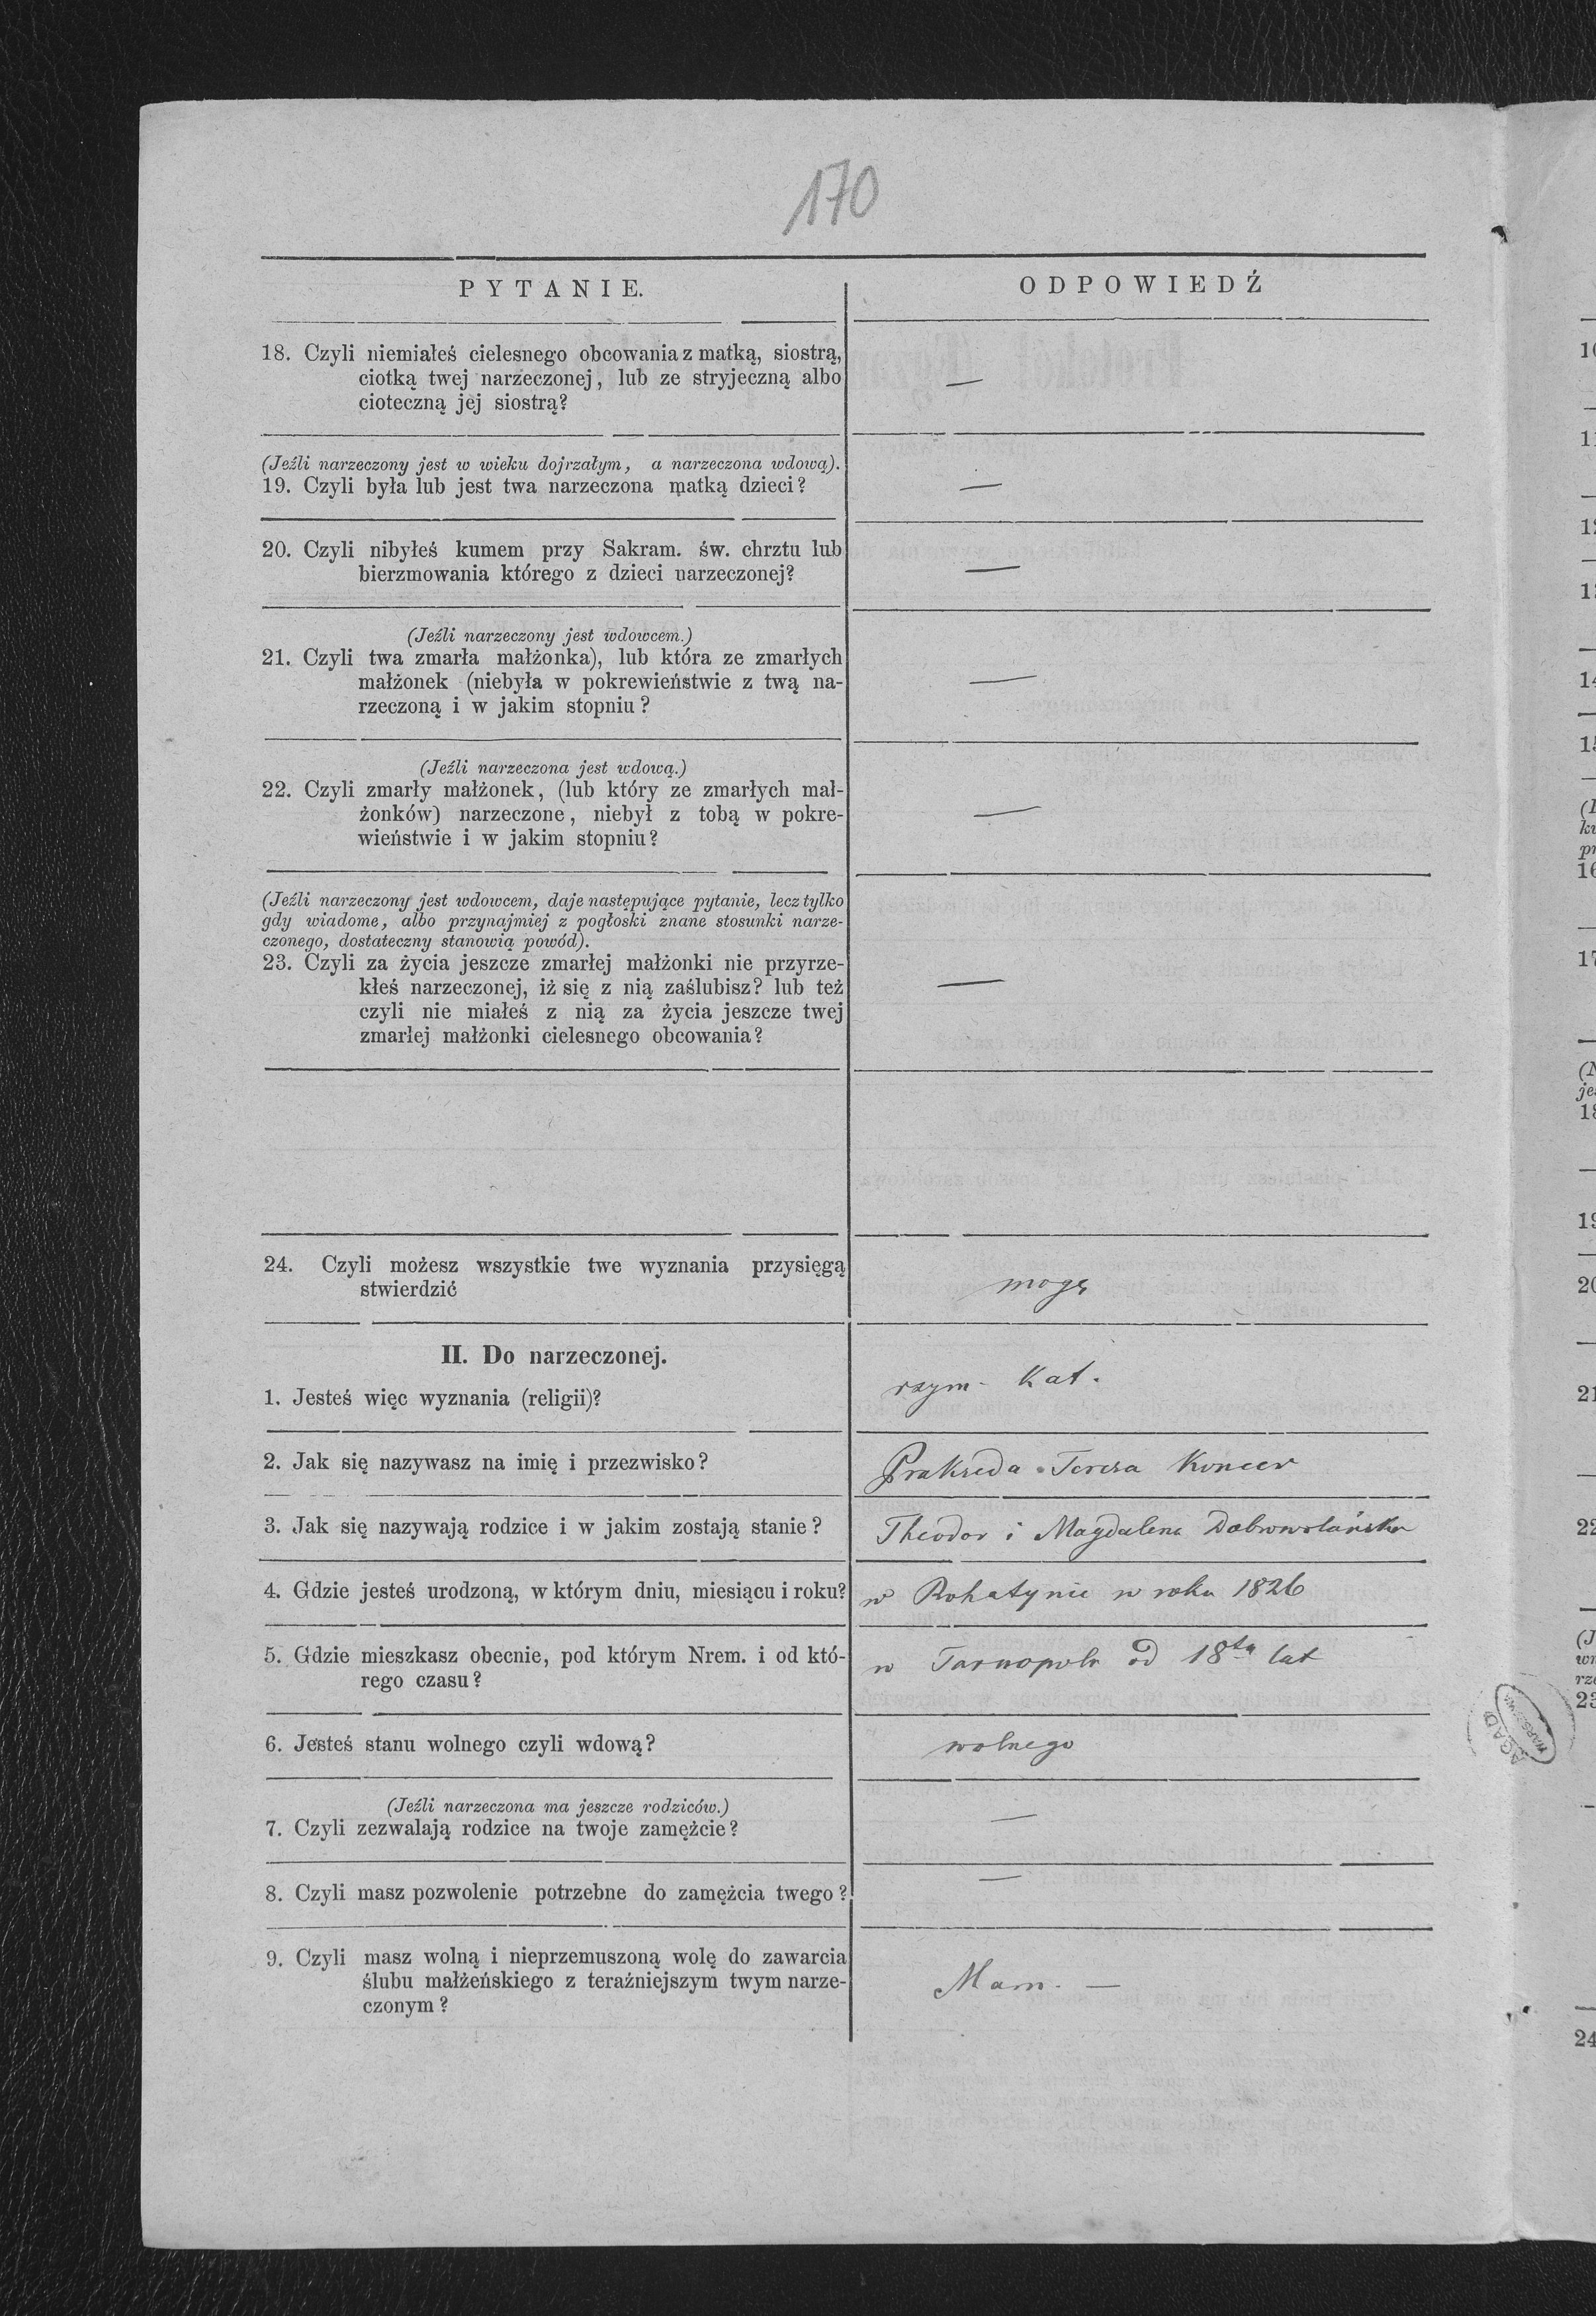 170
PYTANIE.
ODPOWIEDŹ
18. Czyli niemiałeś cielesnego obcowania z matką, siostrą,
ciotką twej narzeczonej, lub ze stryjeczną albo
cioteczną jej siostrą?
—
(Jeźli narzeczony jest w wieku dojrzałym, a narzeczona wdową).
19. Czyli była lub jest twa narzeczona matką dzieci?
—
20. Czyli nibyłeś kumem przy Sakram. św. chrztu lub
bierzmowania którego z dzieci narzeczonej?
—
(Jeźli narzeczony jest wdowcem.)
21. Czyli twa zmarła małżonka), lub która ze zmarłych
małżonek (niebyła w pokrewieństwie z twą na-
rzeczoną i w jakim stopniu?
—
(Jeźli narzeczona jest wdową.)
22. Czyli zmarły małżonek, (lub który ze zmarłych mał-
żonków) narzeczone, niebył z tobą w pokre-
wieństwie i w jakim stopniu?
—
(Jeźli narzeczony jest wdowcem, daje następujące pytanie, lecz tylko
gdy wiadome, albo przynajmiej z pogłoski znane stosunki narze-
czonego, dostateczny stanowią powód).
23. Czyli za życia jeszcze zmarłej małżonki nie przyrze-
kłeś narzeczonej, iż się z nią zaślubisz? lub też
czyli nie miałeś z nią za życia jeszcze twej
zmarłej małżonki cielesnego obcowania?
—
24. Czyli możesz wszystkie twe wyznania przysięgą
stwierdzić
mogę
II. Do narzeczonej.
1. Jesteś więc wyznania (religii)?
rzym- kat.
2. Jak się nazywasz na imię i przezwisko?
Prakseda Teresa Koncer
3. Jak się nazywają rodzice i w jakim zostają stanie?
Theodor i Magdalena
4. Gdzie jesteś urodzoną, w którym dniu, miesiącu i roku?
w Rohatynie w roku 1826
5. Gdzie mieszkasz obecnie, pod którym Nrem. i od któ-
rego czasu?
w Tarnopolu od 18tu lat
6. Jesteś stanu wolnego czyli wdową?
wolnego
(Jeźli narzeczona ma jeszcze rodziców.)
7. Czyli zezwalają rodzice na twoje zamężcie?
—
8. Czyli masz pozwolenie potrzebne do zamężcia twego?
—
9. Czyli masz wolną i nieprzemuszoną wolę do zawarcia
ślubu małżeńskiego z teraźniejszym twym narze-
czonym?
Mam. —
AGAD
WARSZAWA